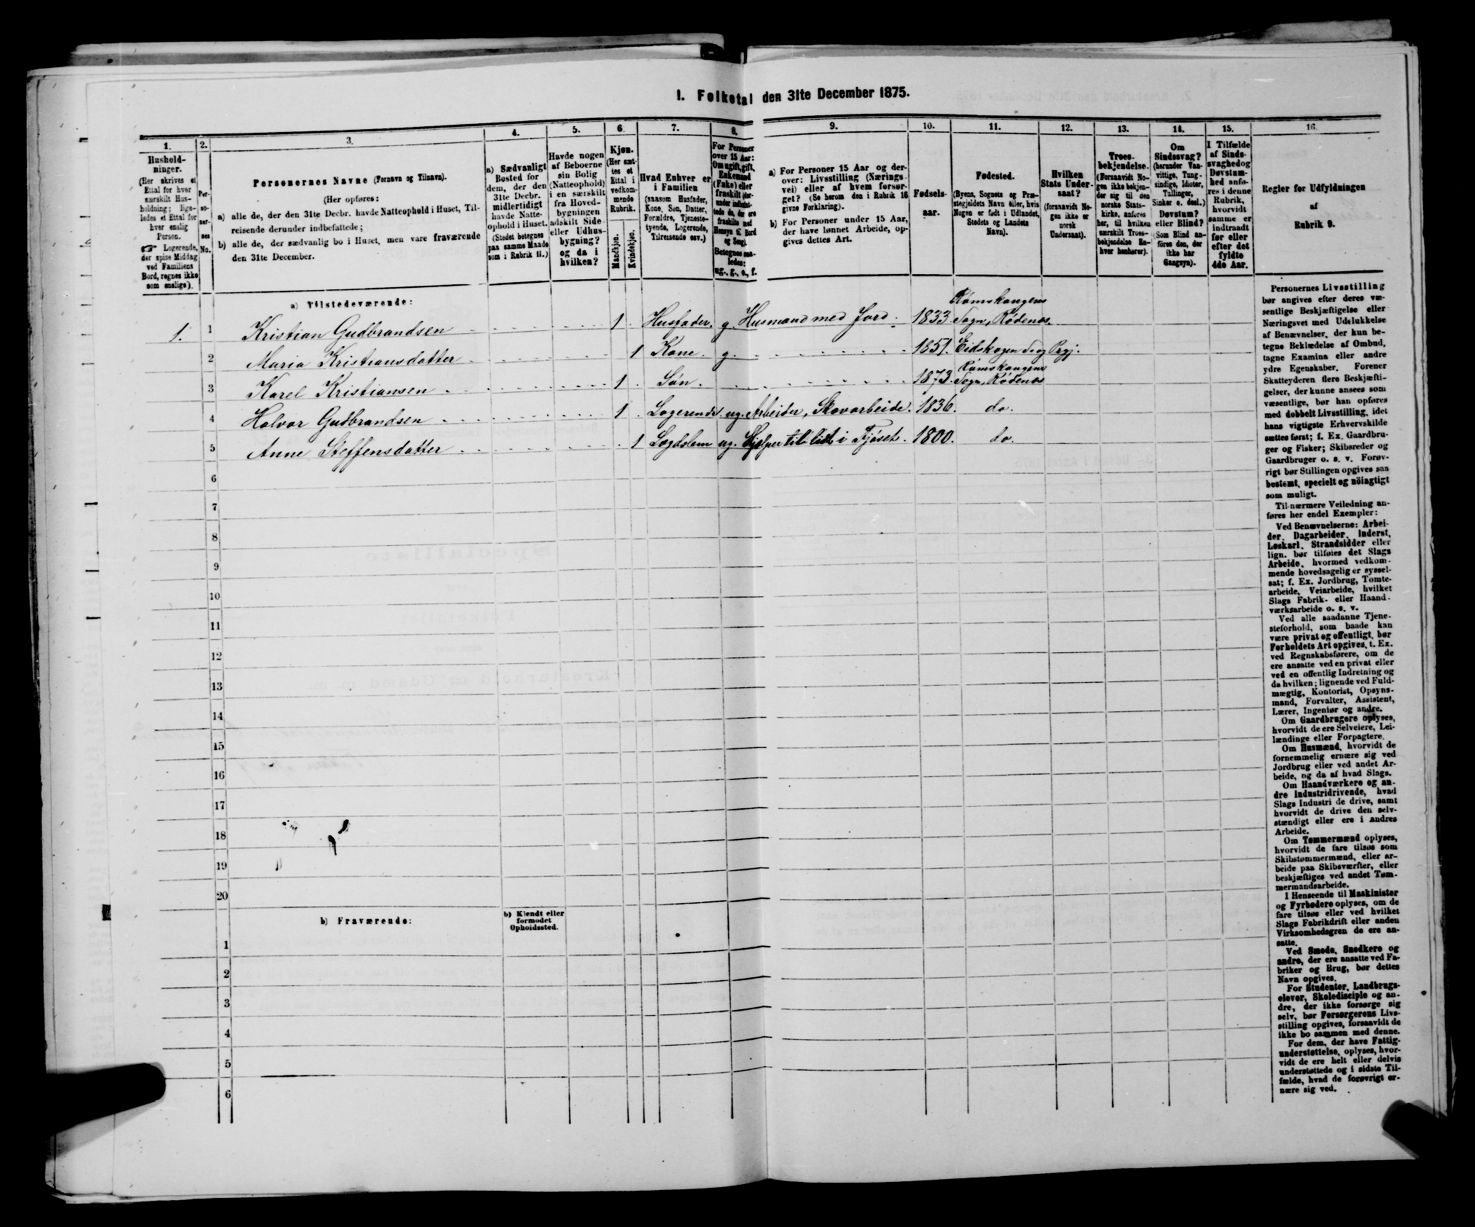 1. Folketal den 31te December 1875.
1.
2.
3.
4.
5.
6.
7.
8.
9.
10.
11.
12.
13.
14.
15.
16.
Hushold-
ninger.
(Her skrives et
Ettal for hver
særskilt Hus-
holdning; lige-
ledes et Ettal for
hver enslig
Person.
☞ Logerende,
der spise Middag
ved Familiens
Bord, regnes ikke
som enslige).
Per-
so-
ner-
nes
No.
Personernes Navne (Fornavn og Tilnavn).
(Her opføres:
a) alle de, der den 31te Decbr. havde Natteophold i Huset, Til-
reisende derunder indbefattede;
b) alle de, der sædvanlig bo i Huset, men vare fraværende
den 31te December.
a) Sædvanligt
Bosted for
dem, der den
31te Decbr.
midlertidigt
havde Natte-
ophold i Huset.
(Stedet betegnes
paa samme Maade
som i Rubrik 11.)
Havde nogen
af Beboerne
sin Bolig
(Natteophold)
i en særskilt
fra Hoved-
bygningen
adskilt Side
eller Udhus-
bygning?
og da i
hvilken?
Kjøn.
(Her sæt-
tes et
Ettal i
vedkom-
mende
Rubrik.
Mandkjøn.
Kvindekjøn.
Hvad Enhver er
i Familien
(saasom Husfader,
Kone, Søn, Datter,
Forældre, Tjeneste-
tyende, Logerende,
Tilreisende osv.)
For Personer
over 15 Aar:
Om ugift, gift,
Enkemand
(Enke) eller
fraskilt
Betegnes saa-
ledes:
ug., g., e., f.
a) For Personer 15 Aar og der-
over: Livsstilling (Nærings-
vei) eller af hvem forsør-
get? (Se herom den i Rubrik 16
givne Forklaring).
b) For Personer under 15 Aar,
der have lønnet Arbeide, op-
gives dettes Art.
Fødsels-
aar.
Fødested.
(Byens, Sognets og Præ-
stegjeldets Navn eller, hvis
Nogen er født i Udlandet,
Stedets og Landets
Navn).
Hvilken
Stats Under-
saat?
(foranavidt No-
gen ikke er
norsk
Undersaat).
Troes-
bekjendelse.
(Foranavidt No-
gen ikke bekjen-
der sig til den
norske Stats-
kirke, anføres
her, til hvilken
særskilt Troes-
bekjendelse En-
hver henhører).
Om
Sindssvag?
(herunder Van-
vittige, Tung-
sindige, Idioter,
Tullinger,
Sinker o. desl.)
Døvstum?
eller Blind?
(Som Blind an-
føres den, der
ikke har
Gangsyn).
I Tilfælde
af Sinds-
svaghed og
Døvstum-
hed anfø-
res i denne
Rubrik,
hvorvidt
samme er
indtraadt
før eller
efter det
fyldte
4de Aar.
Regler for Udfyldningen
af
Rubrik 9.
a) Tilstedeværende:
1. 1 Kristian Gudbrandsen 1 Husfader g Husmand med Jord. 1833 Rømskougens Sogn, Rødenes
2 Maria Kristiansdatter 1 Kone g. 1851. Eidskogen
3 Karel Kristiansen 1 Søn. 1873. Rømskougens Sogn, Rødenes
4 Halvor Gudbrandsen 1 Logerende ug. Arbeider, Skovarbeide. 1836. do.
5 Anne Steffensdatter 1 Lægdslem ug. Hjelper til lidt i Fjøset. 1800. do.
6
7
8
9
10
11
12
13
14
15
16
17
18
19
20
b) Fraværende:
b) Kjendt eller
formodet
Opholdssted.
1
2
3
4
5
6
Personernes Livsstilling
bør angives efter deres væ-
sentlige Beskjæftigelse eller
Næringsvei med Udelukkelse
af Benævnelser, der kun be-
tegne Beklædelse af Ombud,
tagne Examina eller andre
ydre Egenskaber. Forener
Skatteyderen flere Beskjæfti-
gelser, der kunne ansees som
væsentlige, bør han opføres
med dobbelt Livsstilling, idet
hans vigtigste Erhvervskilde
sættes først; f. Ex. Gaardbru-
ger og Fisker; Skibsreder og
Gaardbruger o. s. v. Forøv-
rigt bør Stillingen opgives saa
bestemt, specielt og nöiagtigt
som muligt.
Til nærmere Veiledning an-
føres her endel Exempler:
Ved Benævnelserne: Arbei-
der, Dagarbeider, Inderst,
Løskarl, Strandsidder eller
lign. bør tilføies det Slags
Arbeide, hvormed vedkom-
mende hovedsagelig er syssel-
sat; f. Ex. Jordbrug, Tomte-
arbeide, Veiarbeide, hvilket
Slags Fabrik- eller Haand-
værksarbeide o. s. v.
Ved alle saadanne Tjene-
steforhold, som baade kan
være privat og offentligt, bør
Forholdets Art opgives, f. Ex.
ved Regnskabsførere, om de
ere ansatte ved en privat eller
ved en offentlig Indretning og
da hvilken; lignende ved Fuld-
mægtig, Kontorist, Opsyns-
mand, Forvalter, Assistent,
Lærer, Ingeniør og andre.
Om Gaardbrugere oplyses,
hvorvidt de ere Selveiere, Lei-
lændinge eller Forpagtere.
Om Husmænd, hvorvidt de
fornemmelig ernære sig ved
Jordbrug eller ved andet Ar-
beide, og da af hvad Slags.
Om Haandværkere og an-
dre Industridrivende, hvad
Slags Industri de drive, samt
hvorvidt de drive den selv-
stændigt eller ere i andres
Arbeide.
Om Tømmermænd oplyses,
hvorvidt de fare tilsøs som
Skibstømmermænd, eller ar-
beide paa Skibsværfter, eller
beskjæftiges ved andet Tøm-
mermandsarbeide.
I Henseende til Maskinister
og Fyrbødere oplyses, om de
fare tilsøs eller ved hvilket
Slags Fabrikdrift eller anden
Virksomhedsgren de ere an-
satte.
Ved Smede, Snedkere og
andre, der ere ansatte ved Fa-
briker og Brug, bør dettes
Navn opgives.
For Studenter, Landbrugs-
elever, Skoledisciple og an-
dre, der ikke forsørge sig
selv, bør Forsørgerens Livs-
stilling opgives, forsaavidt de
ikke bo sammen med denne.
For dem, der have Fattig-
understøttelse, oplyses, hvor-
vidt de ere helt eller delvis
understøttede og i sidste Til-
fælde, hvad de forøvrigt er-
nære sig ved.